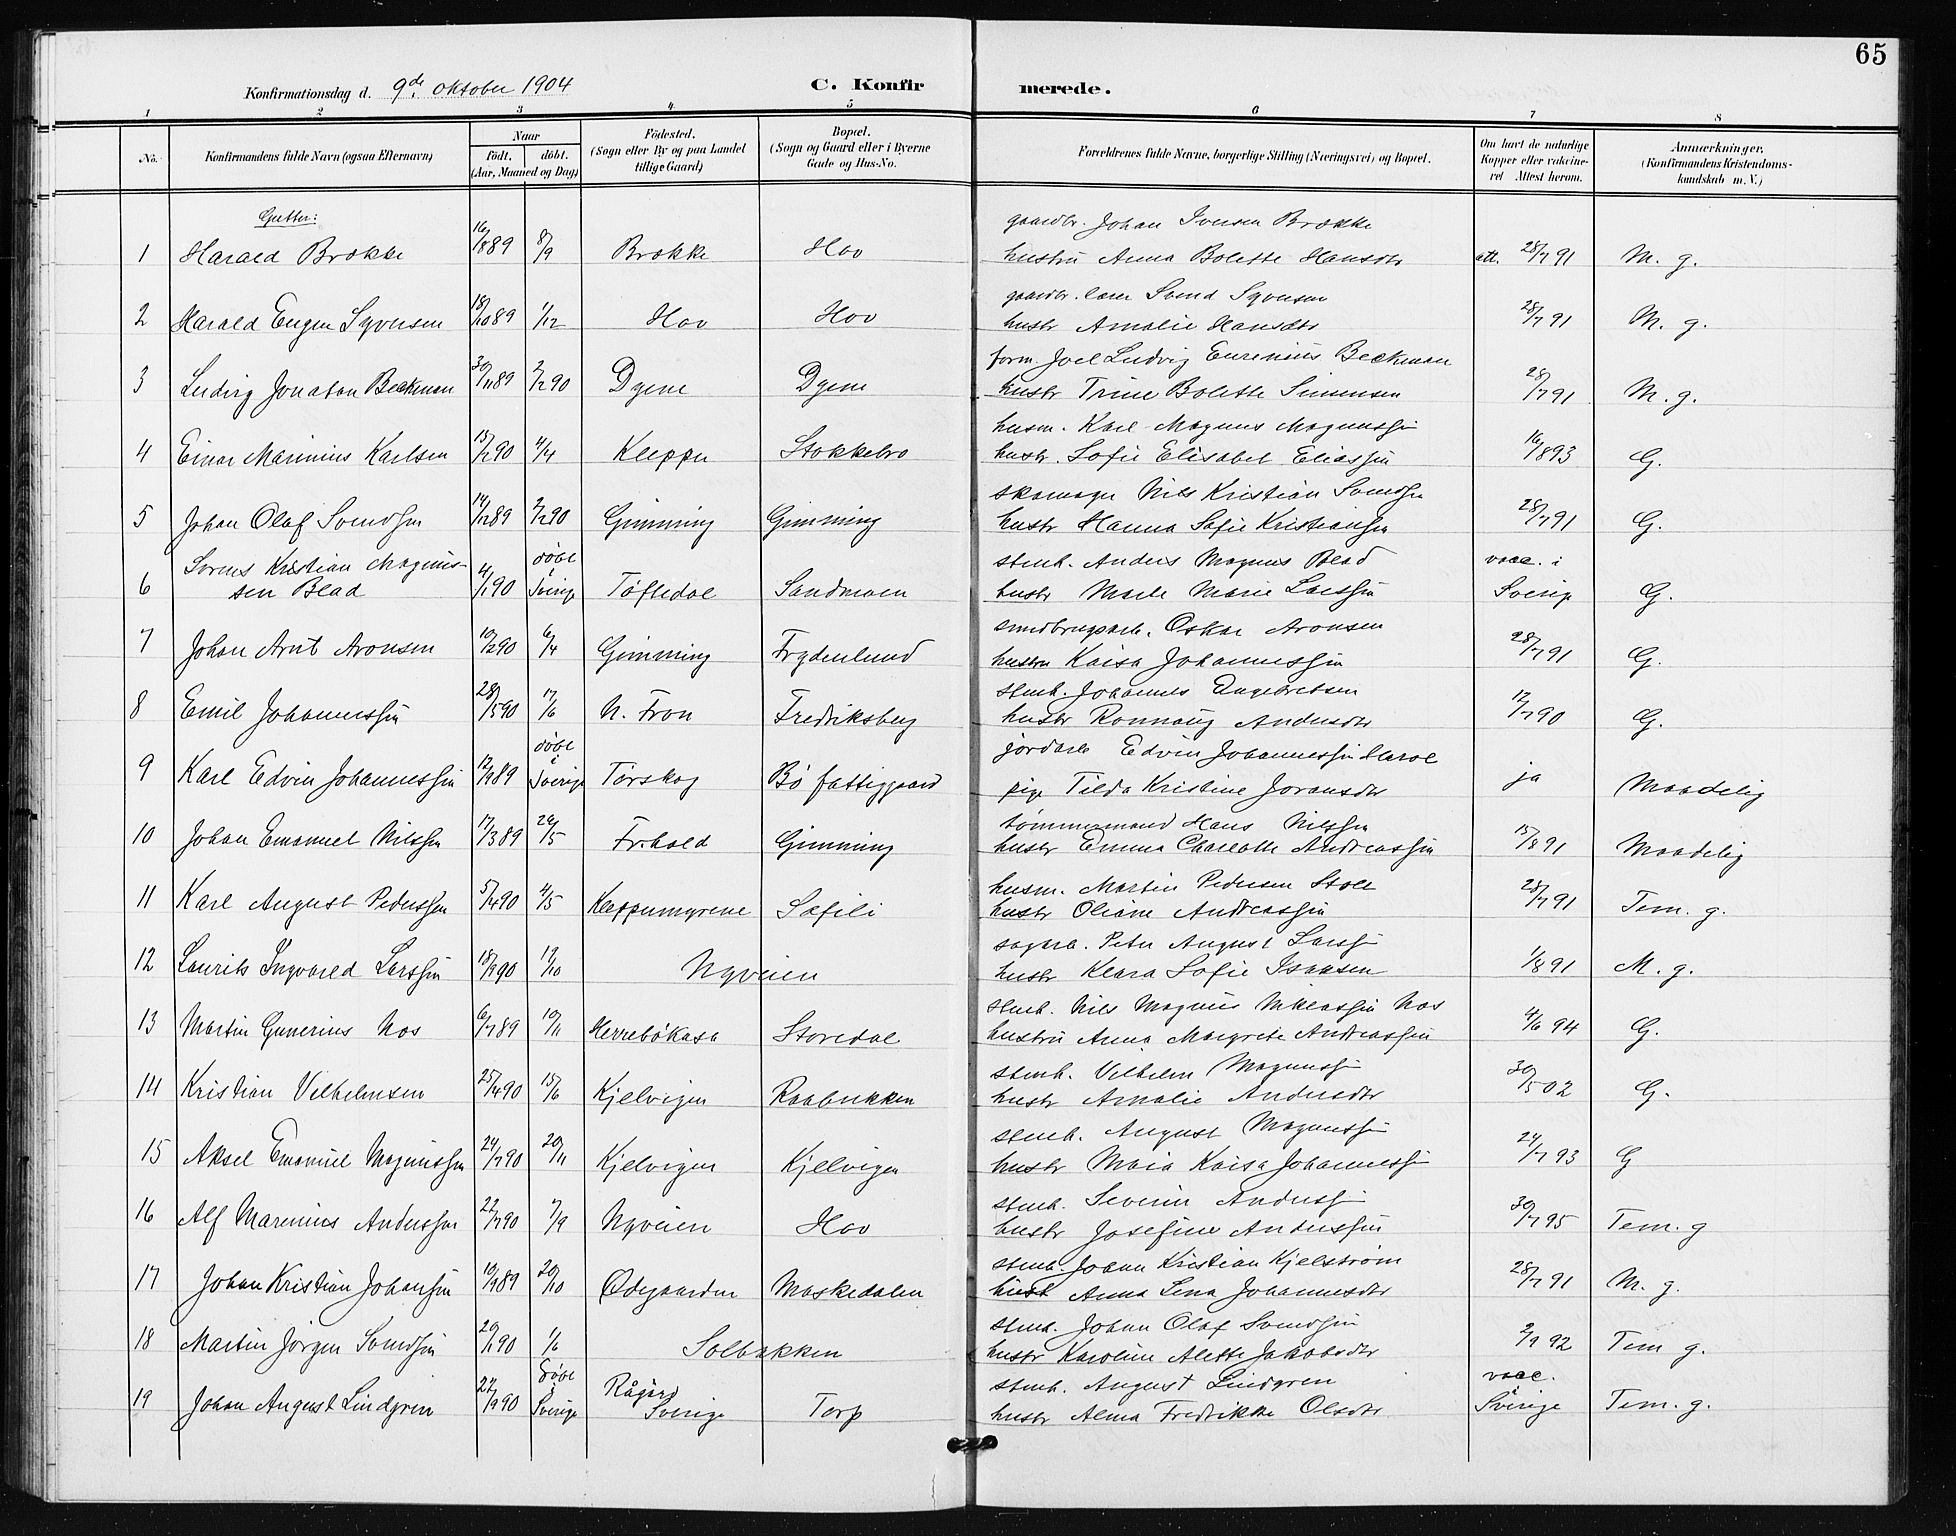 65
Konfirmationsdag d. 9de oktober 1904
C. Konfirmerede.
1 2 3 4 5 6 7 8
No. Konfirmandens fulde Navn (ogsaa Efternavn) Naar födt, döbt. (Aar, Maaned og Dag) Födested. (Sogn eller By og paa Landet tillige Gaard) Bopæl. (Sogn og Gaard eller i Byerne Gade og Hus-No. Forældrenes fulde Navne, borgerlige Stilling (Næringsvei) og Bopæl. Om havt de naturlige Kopper eller vakcineret Attest herom. Anmærkninger, (Konfirmandens Kristendomskundskab m. V.)
Gutter:
gaardbr. Johan Iversen Brække
1 Harald Brække 16/8 89 8/9 Brække Hov hustru Anna Bolette Hansdtr att. 28/7 91 M. g.
gaardbr. lærer Svend Syversen
2 Harald Eugen Syversen 18/10 89 1/12 Hov Hov hustr Amalie Hansdtr 28/7 91 M. g.
form. Joel Ludvig Eurenius Beckman
3 Ludvig Jonatan Beckman 30/11 89 2/2 90 Dyene Dyene hustr Trine Bolette Simensen 28/7 91 M. g.
husm. Karl Magnus Magnussen
4 Einar Marinius Karlsen 13/2 90 4/4 Kleppe Stokkebro hustr. Sofie Elisabet Eliassen 16/8 93 G.
skomager Nils Kristian Svendsen
5 Johan Olaf Svendsen 14/12 89 2/2 90 Gimming Gimming hustr Hanna Sofie Kristiansen 28/7 91 G.
Sorens Kristian Magnus- döbt stenh. Anders Magnus Blad vacc. i
6 sen Blad 4/1 90 i Sverige Töftedal Sandmoen hustr Marte Marie Larssen Sverige G.
smedbrugsarb. Oskar Aronsen
7 Johan Arnt Aronsen 10/2 90 6/4 Gimming Frydenlund hustru Kaisa Johannessen 28/7 91 G.
stenh. Johannes Engebretsen
8 Emil Johannessen 28/5 90 17/6 N. Fron Fredriksberg hustr Rønnaug Andersdtr 17/7 90 G.
döbt jordarb Edvin Johannessen
9 Karl Edvin Johannessen 12/9 89 i Sverige Törskog Bö fattiggaard pige Tilda Kristine Joransdtr ja Maadelig
tömmermand Hans Nilssen
10 Johan Emanuel Nilssen 17/3 89 26/5 Fr.hald Gimming hustr Emma Charlotte Andreassen 15/8 91 Maadelig
husm. Martin Pedersen
11 Karl August Pederssen 5/4 90 4/5 Kleppemyrene Sæfili hustr Oliane Andreassen 28/7 91 Tem. g.
sagarb. Peter August Larssen
12 Laurits Ingvald Larssen 18/9 90 19/10 Nyveien hustr Klara Sofie Isaksen 1/8 91 M. g.
stenh. Nils Magnus Niklassen Nas
13 Martin Gunerius Nas 6/7 89 10/11 Herrebökasa Storedal hustru Anna Margrete Andreassen 4/6 94 G.
stenh. Vilhelm Magnussen
14 Kristian Vilhelmsen 25/4 90 15/6 Kjelvigen Raabukken hustr Amalie Andersdtr 30/5 02 G.
stenh. August Magnussen
15 Aksel Emanuel Magnussen 24/7 90 20/11 Kjelvigen Kjelvigen hustr Maia Kaisa Johannessen 24/7 93 G
stenh. Severin Anderssen
16 Alf Marenius Anderssen 22/7 90 7/9 Nyveien Hov hustr Josefine Anderssen 30/7 95 Tem. g
stenh. Johan Kristian Kjelström
17 Johan Kristian Johansen 10/9 89 20/10 Ødegaarden Maskedalen hust Anna Lena Johannesdtr 28/7 91 M. g.
stenh. Johan Olaf Svendsen
18 Martin Jörgen Svendsen 20/1 90 1/6 Solbakken hustr Karoline Alette Jakobsdtr 2/9 92 Tem g.
döbt Rågård stenh. August Lindgren vacc.
19 Johan August Lindgren 22/9 90 i Sverige Sverige Torp hustr Alma Fredrikke Olsdtr i Sverige Tem. g.